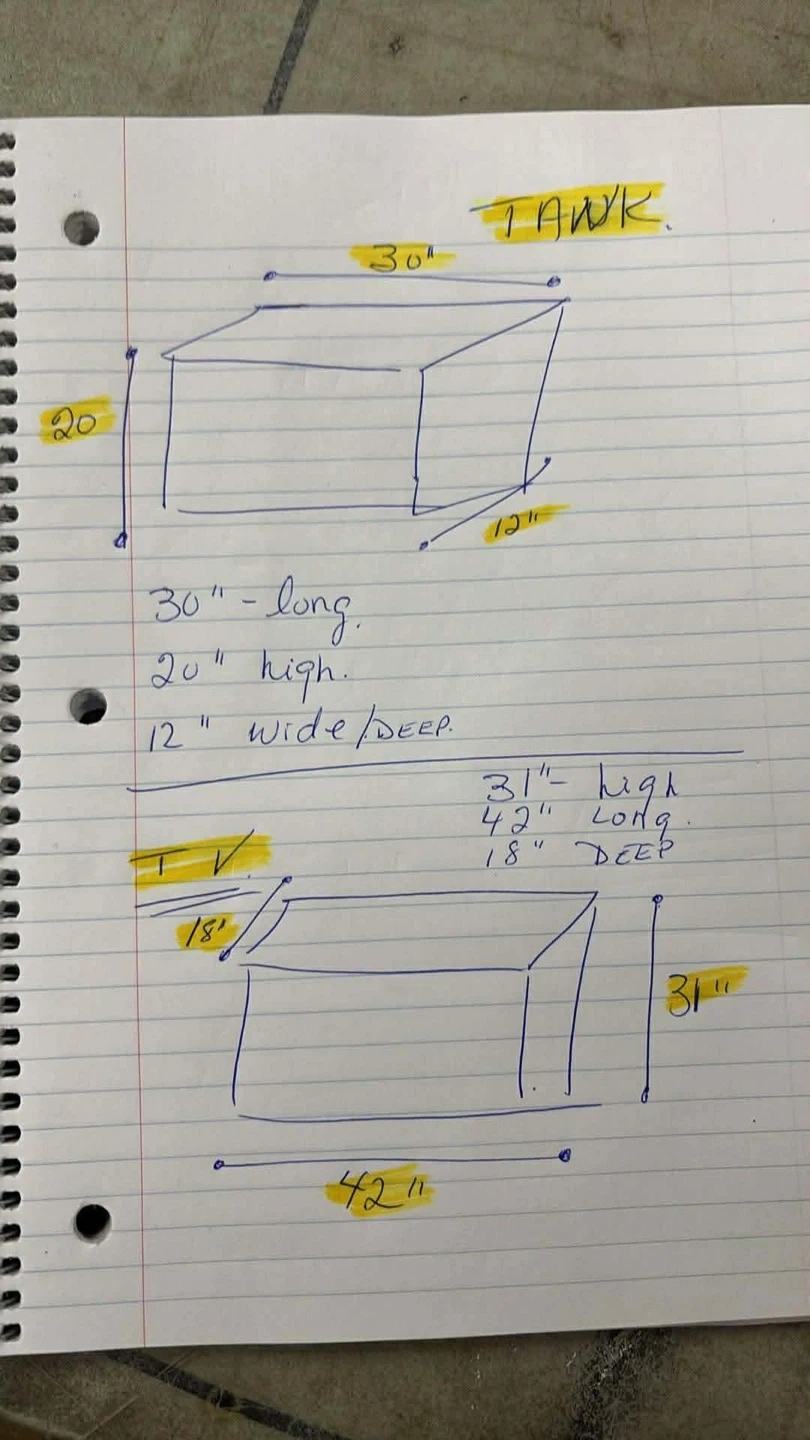 TANK.
30"
20
12"
30" - long.
20" high.
12" wide/DEEP.
31"- high
42" LONG.
18" DEEP
TV
18"
31"
42"